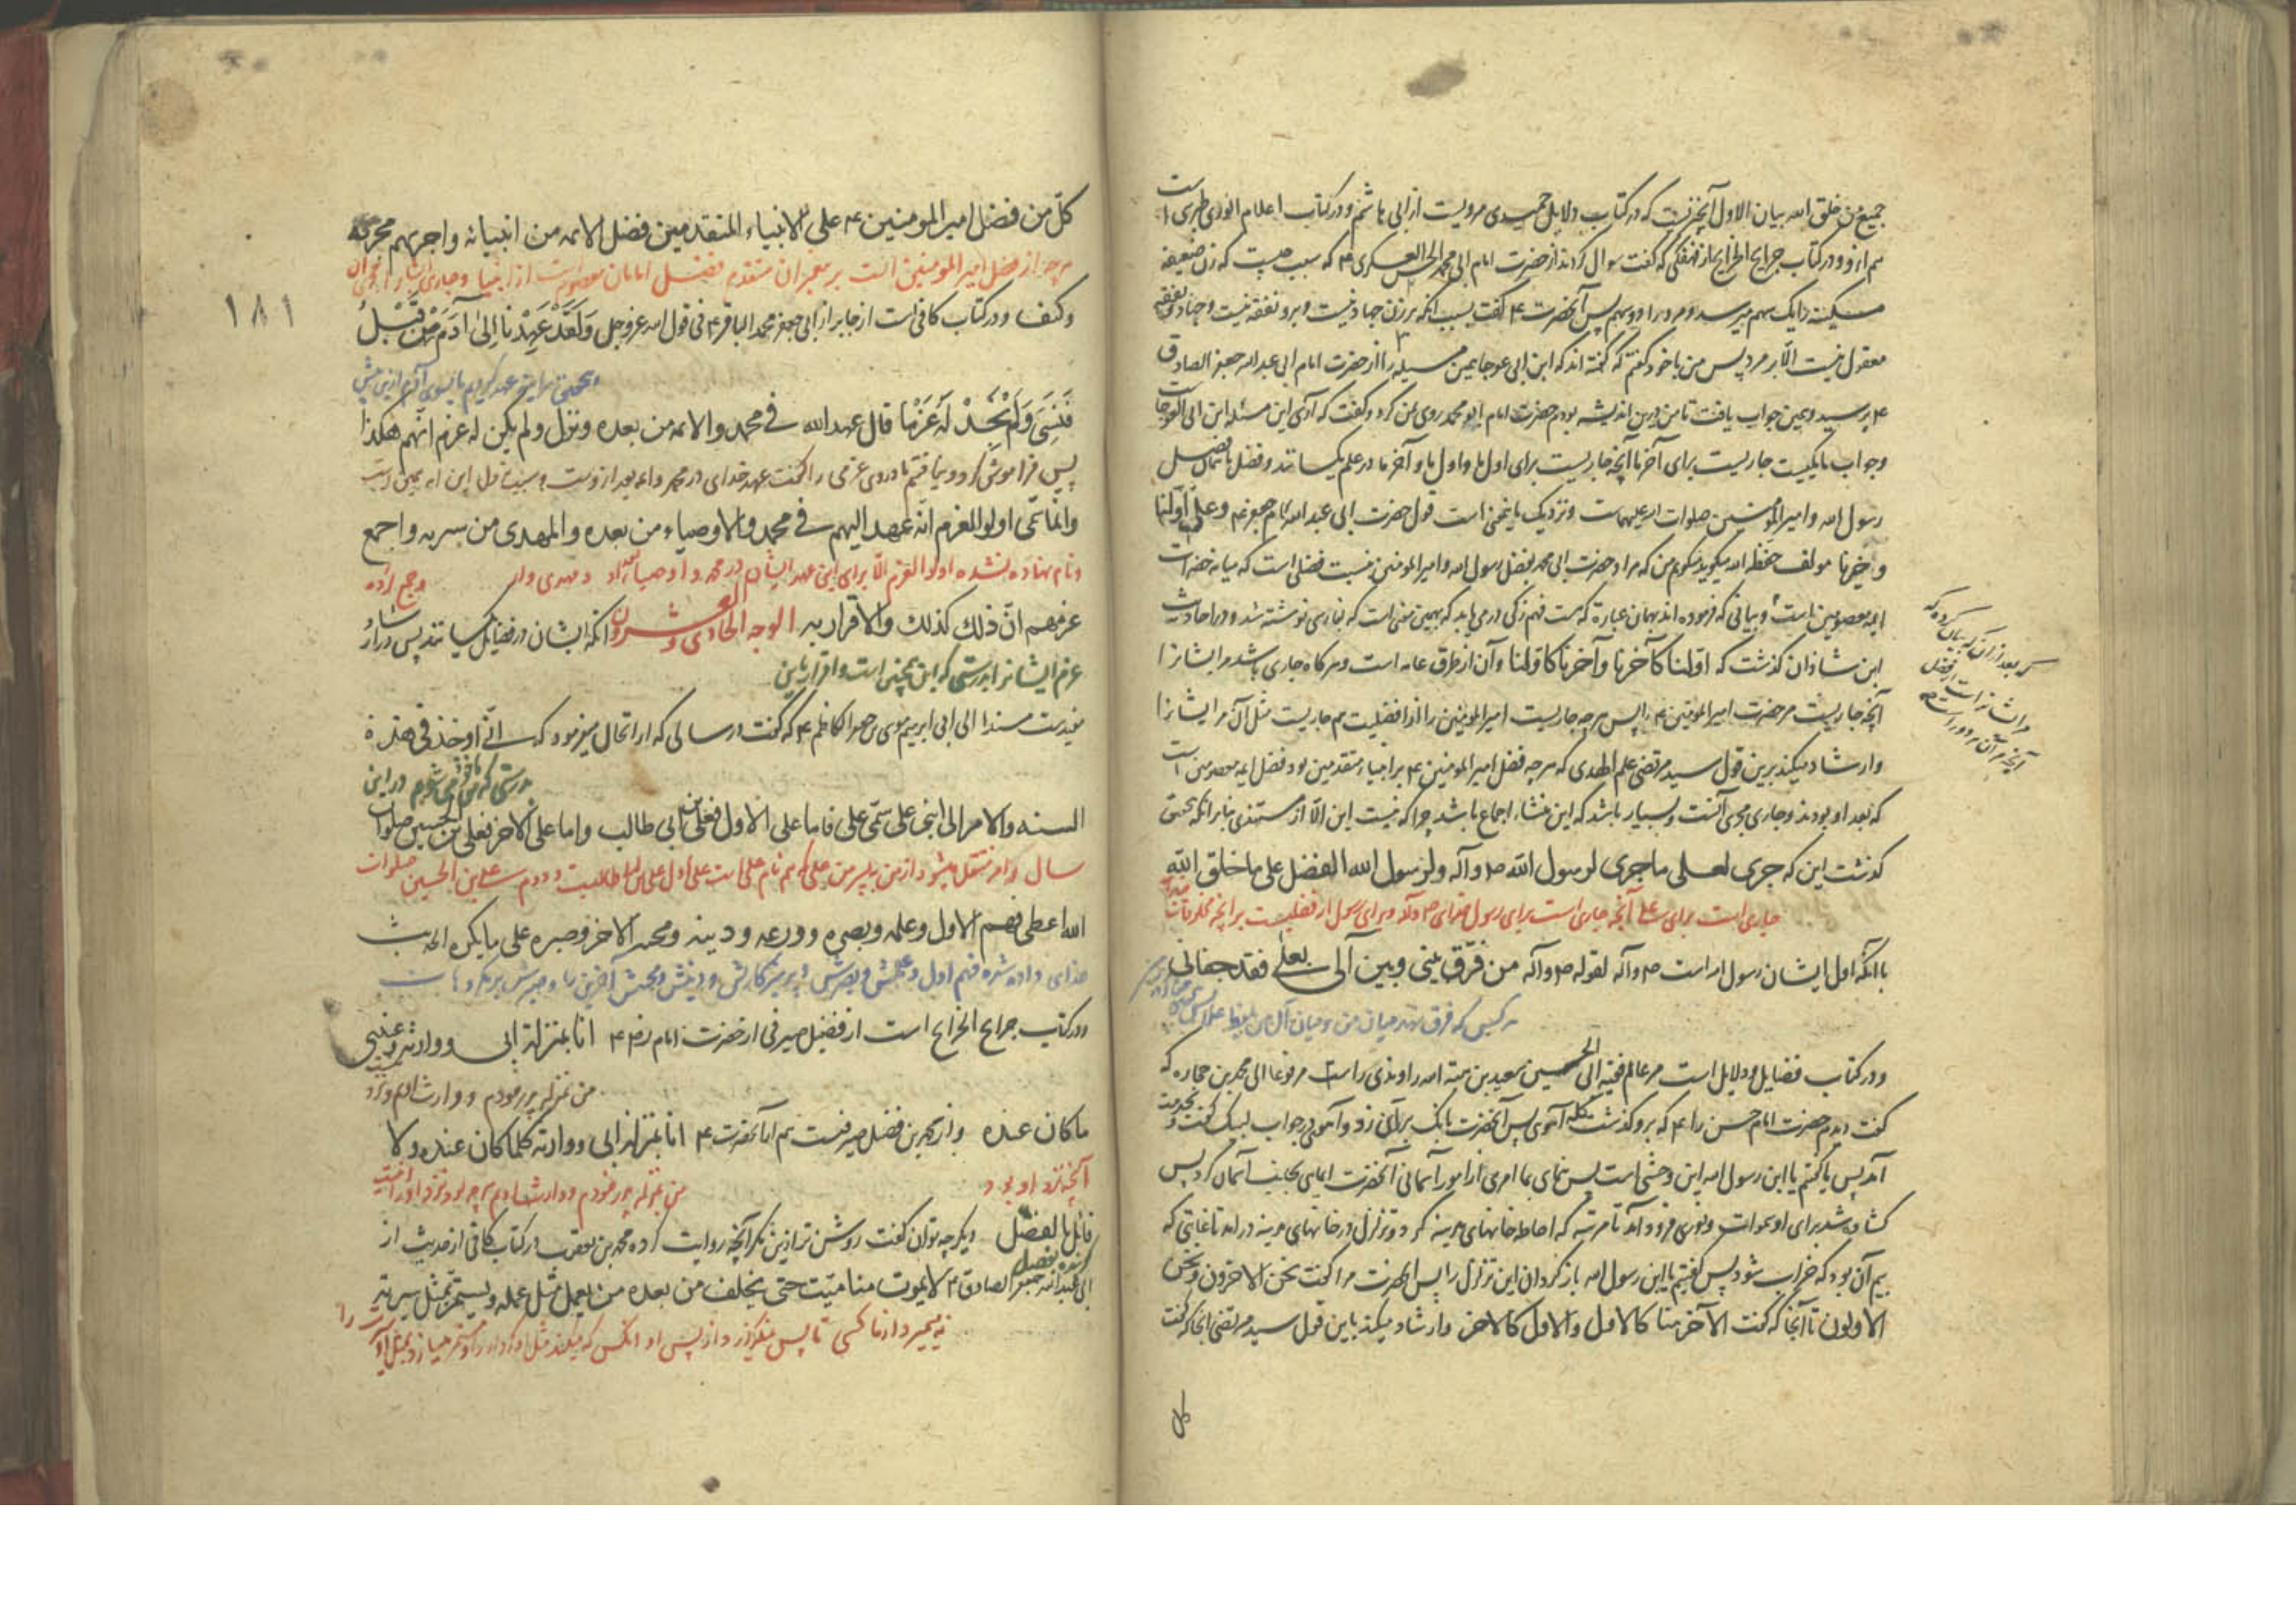 جمیع من خلق الله بیان الاول آنچیزیست که در کتاب دلایل حمیدی مرویست از ابی هاشم و در کتاب اعلام الوری طبری است
هم ازو و در کتاب جرایح الخرایج از فهفکی که گفت سوال کردند از حضرت امام ابی محمد الحسن العسکری ۴ که سبب چیست که زن ضعیفه
مسکینه را یک سهم میرسد و مرد را دو سهم پس آنحضرت ۴ گفت بسبب آنکه بر زن جهاد نیست و برو نفقه نیست و جهاد و نفقه
معقول نیست الا بر مرد پس من با خود گفتم که گفته اند که ابن ابی عوجا همین مسیله را از حضرت امام ابی عبد الله جعفر الصادق
۴ پرسید و همین جواب یافت تا من درین اندیشه بودم حضرت امام ابو محمد روی بمن کرد و گفت که آری این مسئله ابن ابی العوجاست
و جواب ما یکیست جاریست برای آخر ما آنچه جاریست برای اول ما و اول ما و آخر ما در علم یکسانند و فضل
رسول الله و امیر المؤمنین صلوات الله علیهماست و نزدیک باینمعنی است قول حضرت ابی عبد الله امام جعفر ۴ و علی اولنا
و اخیرنا مولف حفظه الله میگوید میگویم من که مراد حضرت ابی محمد بفضل رسول الله و امیر المومنین نسبت فضلی است که میانه حضرات
ایمه معصومین است و بیانی که فرموده اند بهمان عبارة که هست فهم زکی درمی یابد که بهمین معنی است که بفارسی نوشته شد و در احادیث
ابن شاذان گذشت که اولنا کآخرنا و آخرنا کاولنا و آن از طرق عامه است و هرگاه جاری باشد مر ایشانرا
آنچه جاریست مر حضرت امیر المومنین ۴ را پس هرچه جاریست امیر المومنین را از افضلیت هم جاریست مثل آن مر ایشانرا
و ارشاد میکند برین قول سید مرتضی علم الهدی که هرچه فضل امیر المومنین ۴ بر انبیاء متقدمین بود فضل ایمه معصومین است
که بعد او بودند و جاری مجری آنست و بسیار باشد که این منشاء اجماع باشد چرا که نیست این الا از مستندی بنابر آنکه بتحقیق
گذشت این که جری لعلی ما جری لرسول الله ص و آله و لرسول الله الفضل علی ما خلق الله
جاری است برای علی آنچه جاری است برای رسول خدای ص و آله و برای رسول او فضلیست بر آنچه مخلوقات
با آنکه اول ایشان رسول الله است ص و آله لقوله ص و آله من فرق بینی و بین آلی بعلی فقد جفانی
هر کسی که فرق نهد میان من و میان آل من بلفظ علی
و در کتاب فضایل و دلایل است مر عالم فقیه ابی الحسین سعید بن هبة الله راوندی راست مرفوعا الی محمد بن عماره که
گفت دیدم حضرت امام حسن را ۴ که برو گذشت گله آهوی پس آنحضرت بانگ بر آن زد و آهو در جواب لبیک گفت و بخدمت
آمد پس ما گفتم یا ابن رسول الله این وحشی است پس بنمای بما امری از امور آسمانی آنحضرت ایمایی بجانب آسمان کرد پس
گشاده شد برای او سموات و نوری فرود آمد تا مرتبه که احاطه خانهای مدینه کرد و تزلزل در خانهای مدینه در آمد تا غایتی که
بیم آن بود که خراب شود پس گفتیم یا ابن رسول الله باز گردان این تزلزل را پس آنحضرت مرا گفت نحن الاخرون و نحن
الاولون تا آنجا که گفت الآخر منا کالاول والاول کالآخر و ارشاد میکند باین قول سید مرتضی آنجا که گفت
کل
بعد از آن که بیان کرده که
مر ایشانراست از فضل
آنچه مر آن
کل من فضل امیر المومنین ۴ علی الانبیاء المتقدمین فضل الائمه من انبیائه واجریهم مجریه
هرچه از فضل امیر المومنین است بر پیغمبران متقدم فضل امامان معصوم است از انبیا و جاری
و کنف و در کتاب کافی است از جابر از ابی جعفر محمد الباقر ۴ فی قول الله عز وجل ولقد عهدنا الی آدم من قبل
بتحقیق عهد کردیم ما بسوی آدم از پیش
فنسی ولم نجد له عزما قال عهد الله فی محمد والائمه من بعده و نزل ولم یکن له عزم انهم هکذا
پس فراموش کرد و نیافتیم ما در وی عزمی را گفت عهد خدای در محمد و ائمه بعد از وست
وانما سمی اولوا العزم انه عهد الیهم فی محمد والاوصیاء من بعده والمهدی من سیره واجمع
و نام نهاده نشده اولوا العزم الا برای این عهد ایشان در محمد و اوصیاء بعد او و مهدی و جمع زده
عزمهم ان ذلک کذلک والاقرار به الوجه الحادی والعشرون آنکه ایشان در فضایل یکسانند پس در ارشاد
عزم ایشانرا بدرستی که این همچنین است و اقرار باین
مفیدست مسندا الی ابی ابرهیم موسی بن جعفر الکاظم ۴ که گفت در سالی که ارتحال میفرمود که انی اوخذ فی هذه
بدرستی که من ماخوذ می شوم در این
السنه والامر الی ابنی علی سمی علی فاما علی الاول فعلی بن ابی طالب واما علی الاخر فعلی بن الحسین صلوات
سال و امر منتقل میشود از من به پسر من علی که هم نام علی است علی اول علی بن ابی طالبست و دوم علی بن الحسین صلوات
الله اعطی فهم الاول وعلمه وبصره وورعه ودینه ومحنه الاخر وصبره علی مایکره الحدیث
خدای داده شده فهم اول و علمش و بصرش و پرهیزکاریش و دینش و محنتش آخرین را و صبرش بر مکروهات
و در کتاب جرایح الخرایج است از فضیل صیرفی از حضرت امام رضا ۴ انا بمنزلة ابی ووارثه وعندی
من بمنزله پدر خودم و وارث اویم و نزد
ما کان عنده و از محمد بن فضل صیرفیست هم از آنحضرت ۴ انا بمنزلة ابی ووارثه کلما کان عنده ولا
آنچه نزد او بود من بمنزله پدر خودم و وارث اویم هرچه بود نزد او
قائل بالفضل و دیگر چه توان گفت روشن تر ازین مگر آنچه روایت کرده محمد بن یعقوب در کتاب کافی از حدیث از
ابی عبد الله جعفر الصادق ۴ لا یموت منا میت حتی یخلف من بعده من یعمل مثل عمله ویسیر بمثل سیرته
نه میمیرد از ما کسی تا پس میگزارد از پس او آنکس که میکند مثل او
۱۸۱